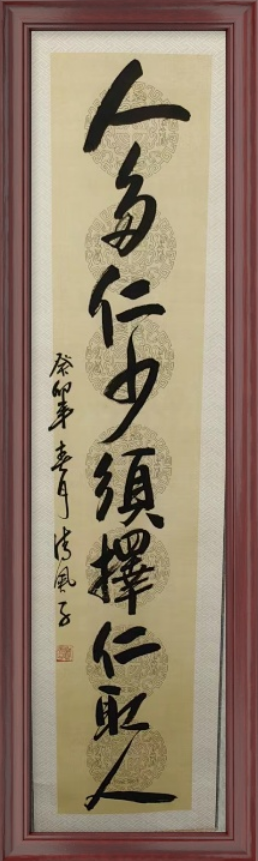 人多仁少須擇仁取人
癸卯年春月清風子